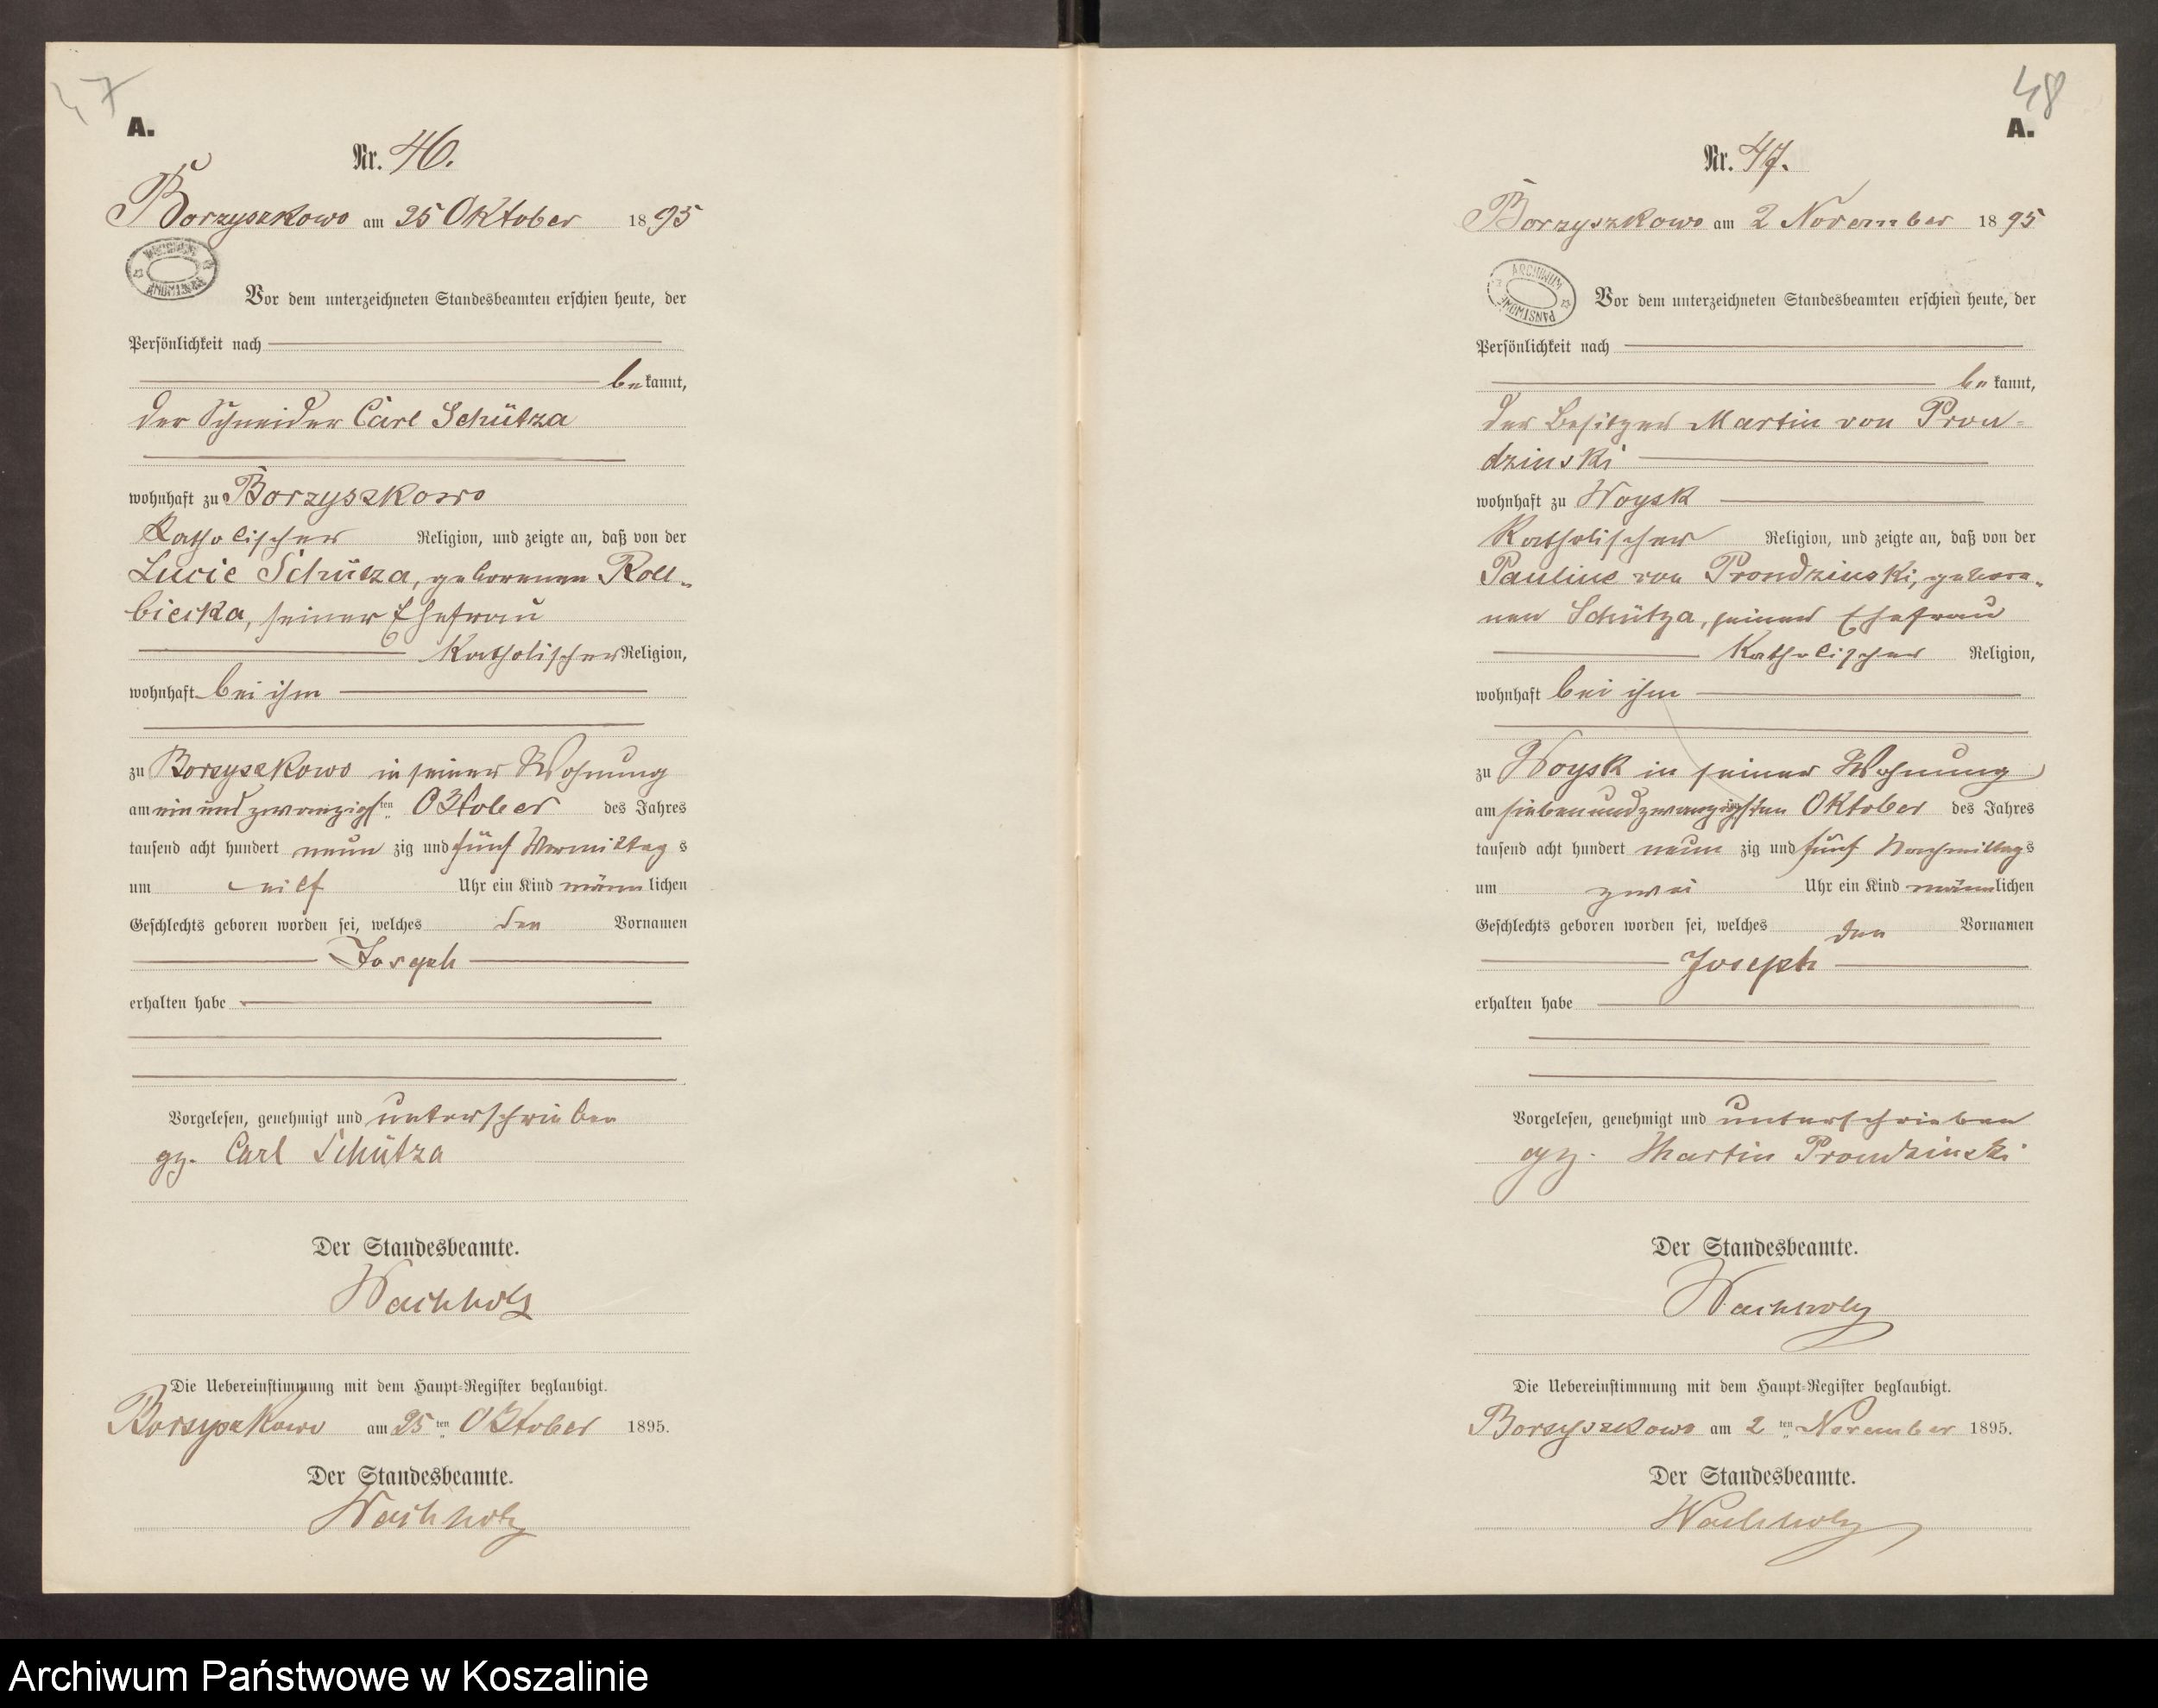 47
A.
Nr. 46.
Borzyszkowo am 25 Oktober 1895
Vor dem unterzeichneten Standesbeamten erschien heute, der
Persönlichkeit nach
bekannt,
der Schneider Carl Schütza
wohnhaft zu Borzyszkowo
Katholischer Religion, und zeigte an, daß von der
Lucie Schütza, geborenen Roll-
biecka, seiner Ehefrau
Katholischer Religion,
wohnhaft bei ihm
zu Borzyszkowo in seiner Wohnung
am ein und zwanzigsten Oktober des Jahres
tausend acht hundert neun zig und fünf Vormittag s
um eilf Uhr ein Kind männlichen
Geschlechts geboren worden sei, welches den Vornamen
Joseph
erhalten habe
Vorgelesen, genehmigt und unterschrieben
gz. Carl Schütza
Der Standesbeamte.
Wachholz
Die Uebereinstimmung mit dem Haupt-Register beglaubigt.
Borzyszkowo am 25 ten Oktober 1895.
Der Standesbeamte.
Wachholz
48
A.
Nr. 47.
Borzyszkowo am 2 November 1895
ARCHIWUM
PAŃSTWOWE
Vor dem unterzeichneten Standesbeamten erschien heute, der
Persönlichkeit nach
bekannt,
der Besitzer Martin von Pron-
dzinski
wohnhaft zu Woysk
Katholischer Religion, und zeigte an, daß von der
Pauline von Prondzinski, gebore-
nen Schütza, seiner Ehefrau
Katholischer Religion,
wohnhaft bei ihm
zu Woysk in seiner Wohnung
am siebenundzwanzigsten Oktober des Jahres
tausend acht hundert neun zig und fünf Nachmittags
um zwei Uhr ein Kind männlichen
Geschlechts geboren worden sei, welches den Vornamen
Joseph
erhalten habe
Vorgelesen, genehmigt und unterschrieben
gez. Martin Prondzinski
Der Standesbeamte.
Wachholz
Die Uebereinstimmung mit dem Haupt-Register beglaubigt.
Borzyszkowo am 2 ten November 1895.
Der Standesbeamte.
Wachholz
Archiwum Państwowe w Koszalinie